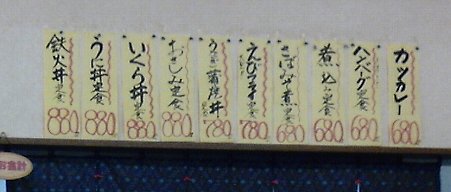 カツカレー
680
ハンバーグ定食
680
煮込み定食
680
さばみそ煮定食
680
えびフライ定食
780
うなぎ蒲焼丼
780
おさしみ定食
880
いくら丼定食
880
うに丼定食
880
鉄火丼定食
880
お会計